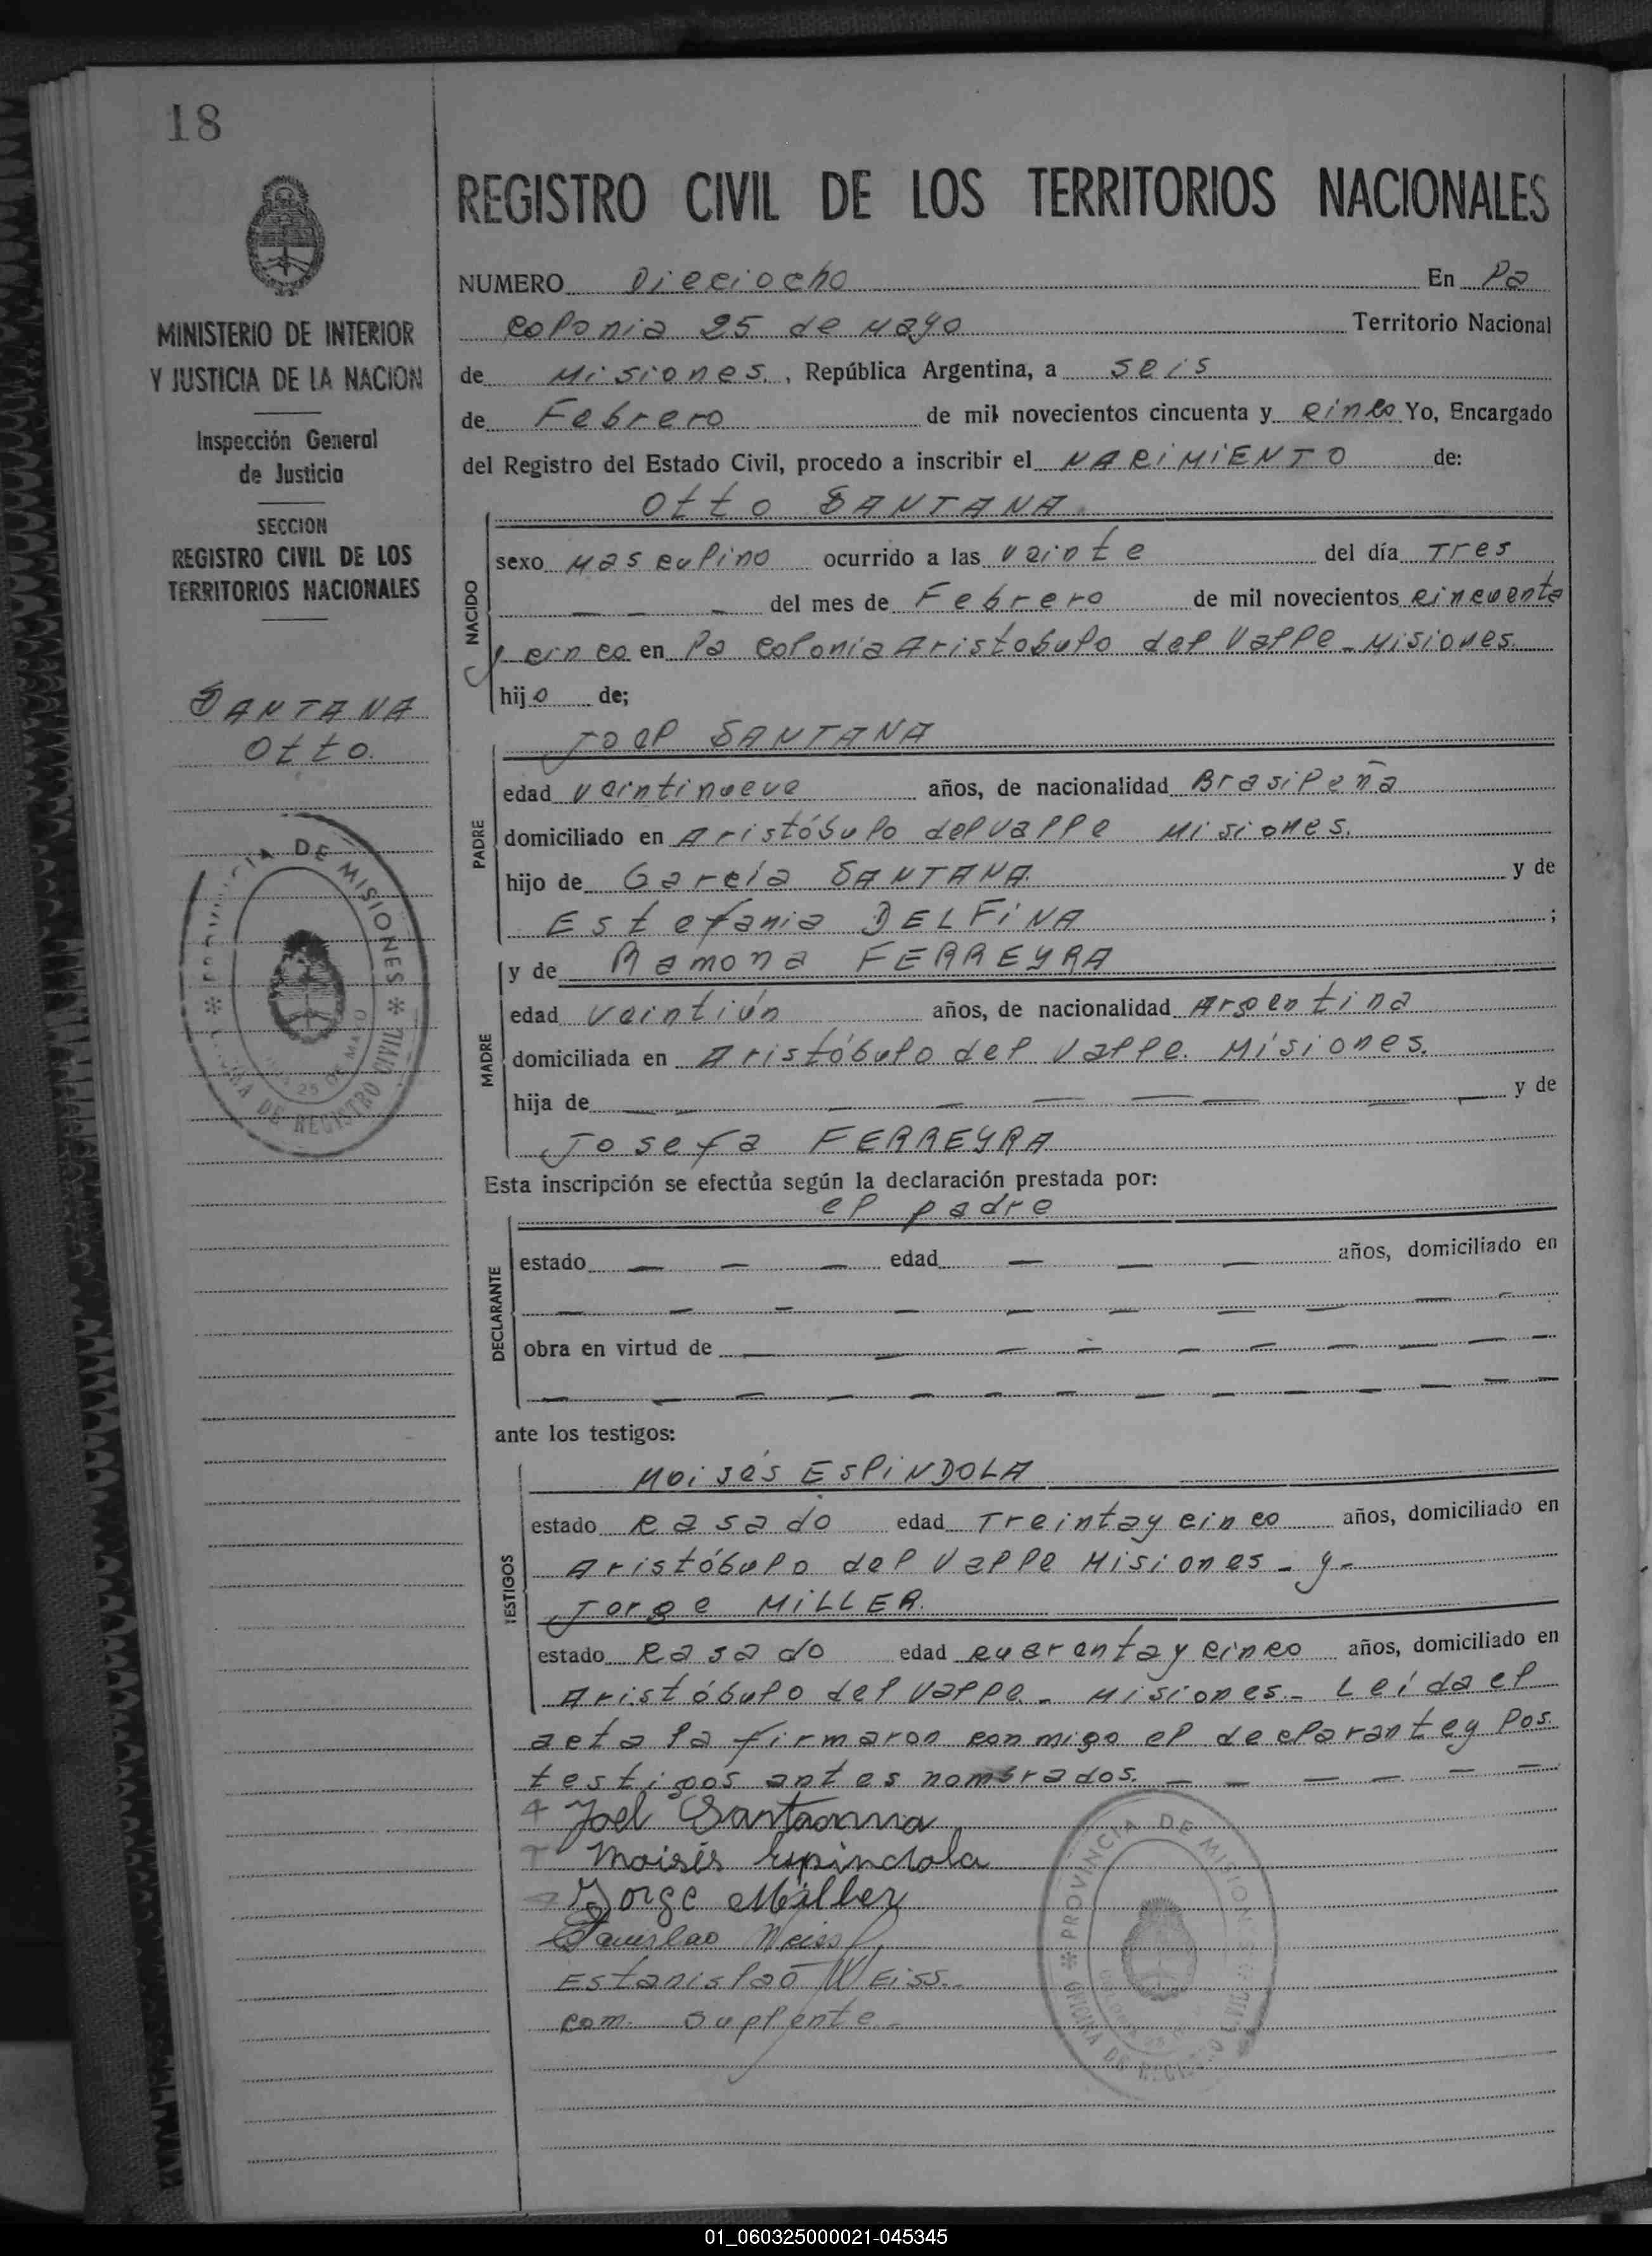 18
REGISTRO CIVIL DE LOS TERRITORIOS NACIONALES
MINISTERIO DE INTERIOR
Y JUSTICIA DE LA NACION
Inspección General
de Justicia
SECCION
REGISTRO CIVIL DE LOS
TERRITORIOS NACIONALES
SANTANA
Otto.
PROVINCIA DE MISIONES * OFICINA DE REGISTRO CIVIL *
NUMERO Dieciocho En la
colonia 25 de Mayo Territorio Nacional
de Misiones., República Argentina, a seis
de Febrero de mil novecientos cincuenta y cinco Yo, Encargado
del Registro del Estado Civil, procedo a inscribir el NACIMIENTO de:
NACIDO
Otto SANTANA.
sexo Masculino ocurrido a las veinte del día Tres
— — — del mes de Febrero de mil novecientos cincuenta
y cinco en la colonia Aristobulo del Valle - Misiones.
hijo de;
PADRE
Joel SANTANA
edad veintinueve años, de nacionalidad Brasileña
domiciliado en Aristóbulo del Valle Misiones.
hijo de García SANTANA. y de
Estefania DELFINA ;
MADRE
y de Ramona FERREYRA
edad veintiún años, de nacionalidad Argentina
domiciliada en Aristóbulo del Valle. Misiones.
hija de — — — — — — — — — y de
Josefa FERREYRA
Esta inscripción se efectúa según la declaración prestada por:
DECLARANTE
el padre
estado — — — edad — — — años, domiciliado en
— — — — — — — — — —
obra en virtud de — — — — — — — — — —
— — — — — — — — — — — — —
ante los testigos:
TESTIGOS
Moisés ESPINDOLA
estado casado edad Treinta y cinco años, domiciliado en
Aristóbulo del Valle Misiones - y -
Jorge MILLER.
estado casado edad cuarenta y cinco años, domiciliado en
Aristóbulo del Valle - Misiones.- Leída el
acta la firmaron conmigo el declarante y los
testigos antes nombrados. — — — — — —
Joel Santanna
Moisés Espindola
Jorge Miller
Estanislao WEISS.-
com. Suplente.-
PROVINCIA DE MISIONES * OFICINA DE REGISTRO CIVIL *
01_060325000021-045345